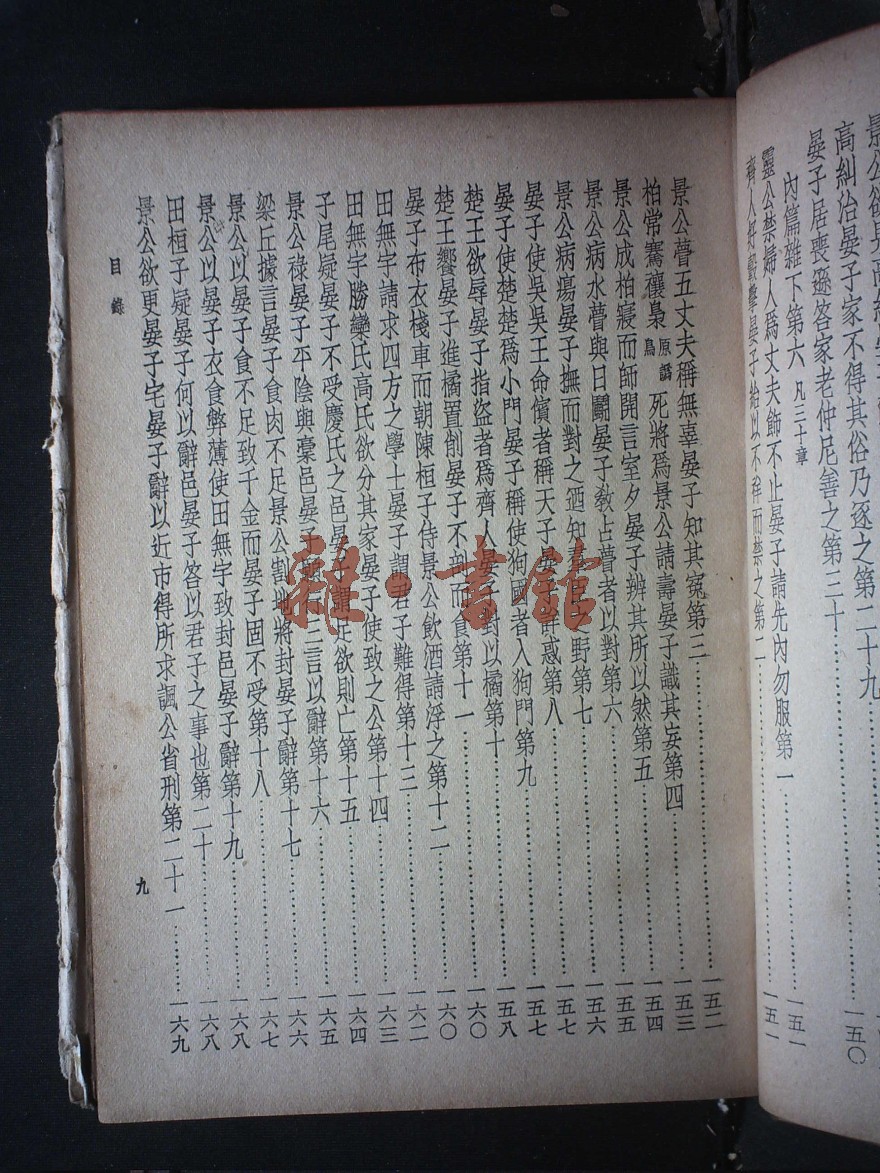 高糾治晏子家不得其俗乃逐之第二十九
晏子居喪遜答家老仲尼善之第三十……一五〇
內篇雜下第六 凡三十章
靈公禁婦人爲丈夫飾不止晏子請先內勿服第一……一五一
齊人好轂擊晏子紿以不祥而禁之第二……一五一
景公瞢五丈夫稱無辜晏子知其冤第三……一五二
柏常騫禳梟 原譌鳥 死將爲景公請壽晏子識其妄第四……一五三
景公成柏寢而師開言室夕晏子辨其所以然第五……一五四
景公病水瞢與日鬭晏子敎占瞢者以對第六……一五五
景公病瘍晏子撫而對之迺知
之野第七……一五六
晏子使吳吳王命儐者稱天子晏子
惑第八……一五七
晏子使楚楚爲小門晏子稱使狗國者入狗門第九……一五七
楚王欲辱晏子指盜者爲齊人晏子對以橘第十……一五八
楚王饗晏子進橘置削晏子不剖而食第十一……一六〇
晏子布衣棧車而朝陳桓子侍景公飲酒請浮之第十二……一六〇
田無宇請求四方之學士晏子謂君子難得第十三……一六二
田無宇勝欒氏高氏欲分其家晏子使致之公第十四……一六三
子尾疑晏子不受慶氏之邑晏子謂足欲則亡第十五……一六四
景公祿晏子平陰與槀邑晏子
三言以辭第十六……一六五
梁丘據言晏子食肉不足景公割地將封晏子辭第十七……一六六
景公以晏子食不足致千金而晏子固不受第十八……一六七
景公以晏子衣食弊薄使田無宇致封邑晏子辭第十九……一六八
田桓子疑晏子何以辭邑晏子答以君子之事也第二十……一六八
景公欲更晏子宅晏子辭以近市得所求諷公省刑第二十一……一六九
目錄
九
雜·書館